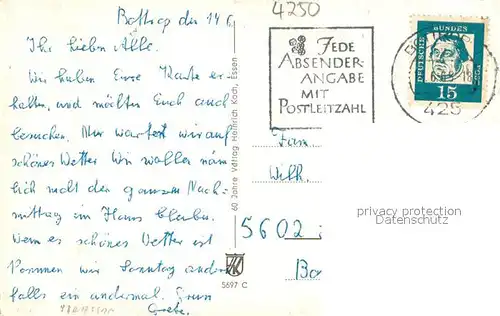 4250
Bottrop den 14 6.
Ihr lieben Alle.
Wir haben Eure Karte er-
halten, und möchten Euch auch
besuchen. Nur warten wir auf
schönes Wetter Wir wollen näm
lich nicht den ganzen Nach-
mittag im Haus bleiben.
Wenn es schönes Wetter ist
kommen wir Sonntag andern
falls ein andermal. Grete
60 Jahre Verlag Heinrich Koch, Essen
5697 C
JEDE
ABSENDER-
ANGABE
MIT
POSTLEITZAHL
DEUTSCHE BUNDESPOST
15
425
Fam.
Wilh.
5602
privacy protection
Datenschutz